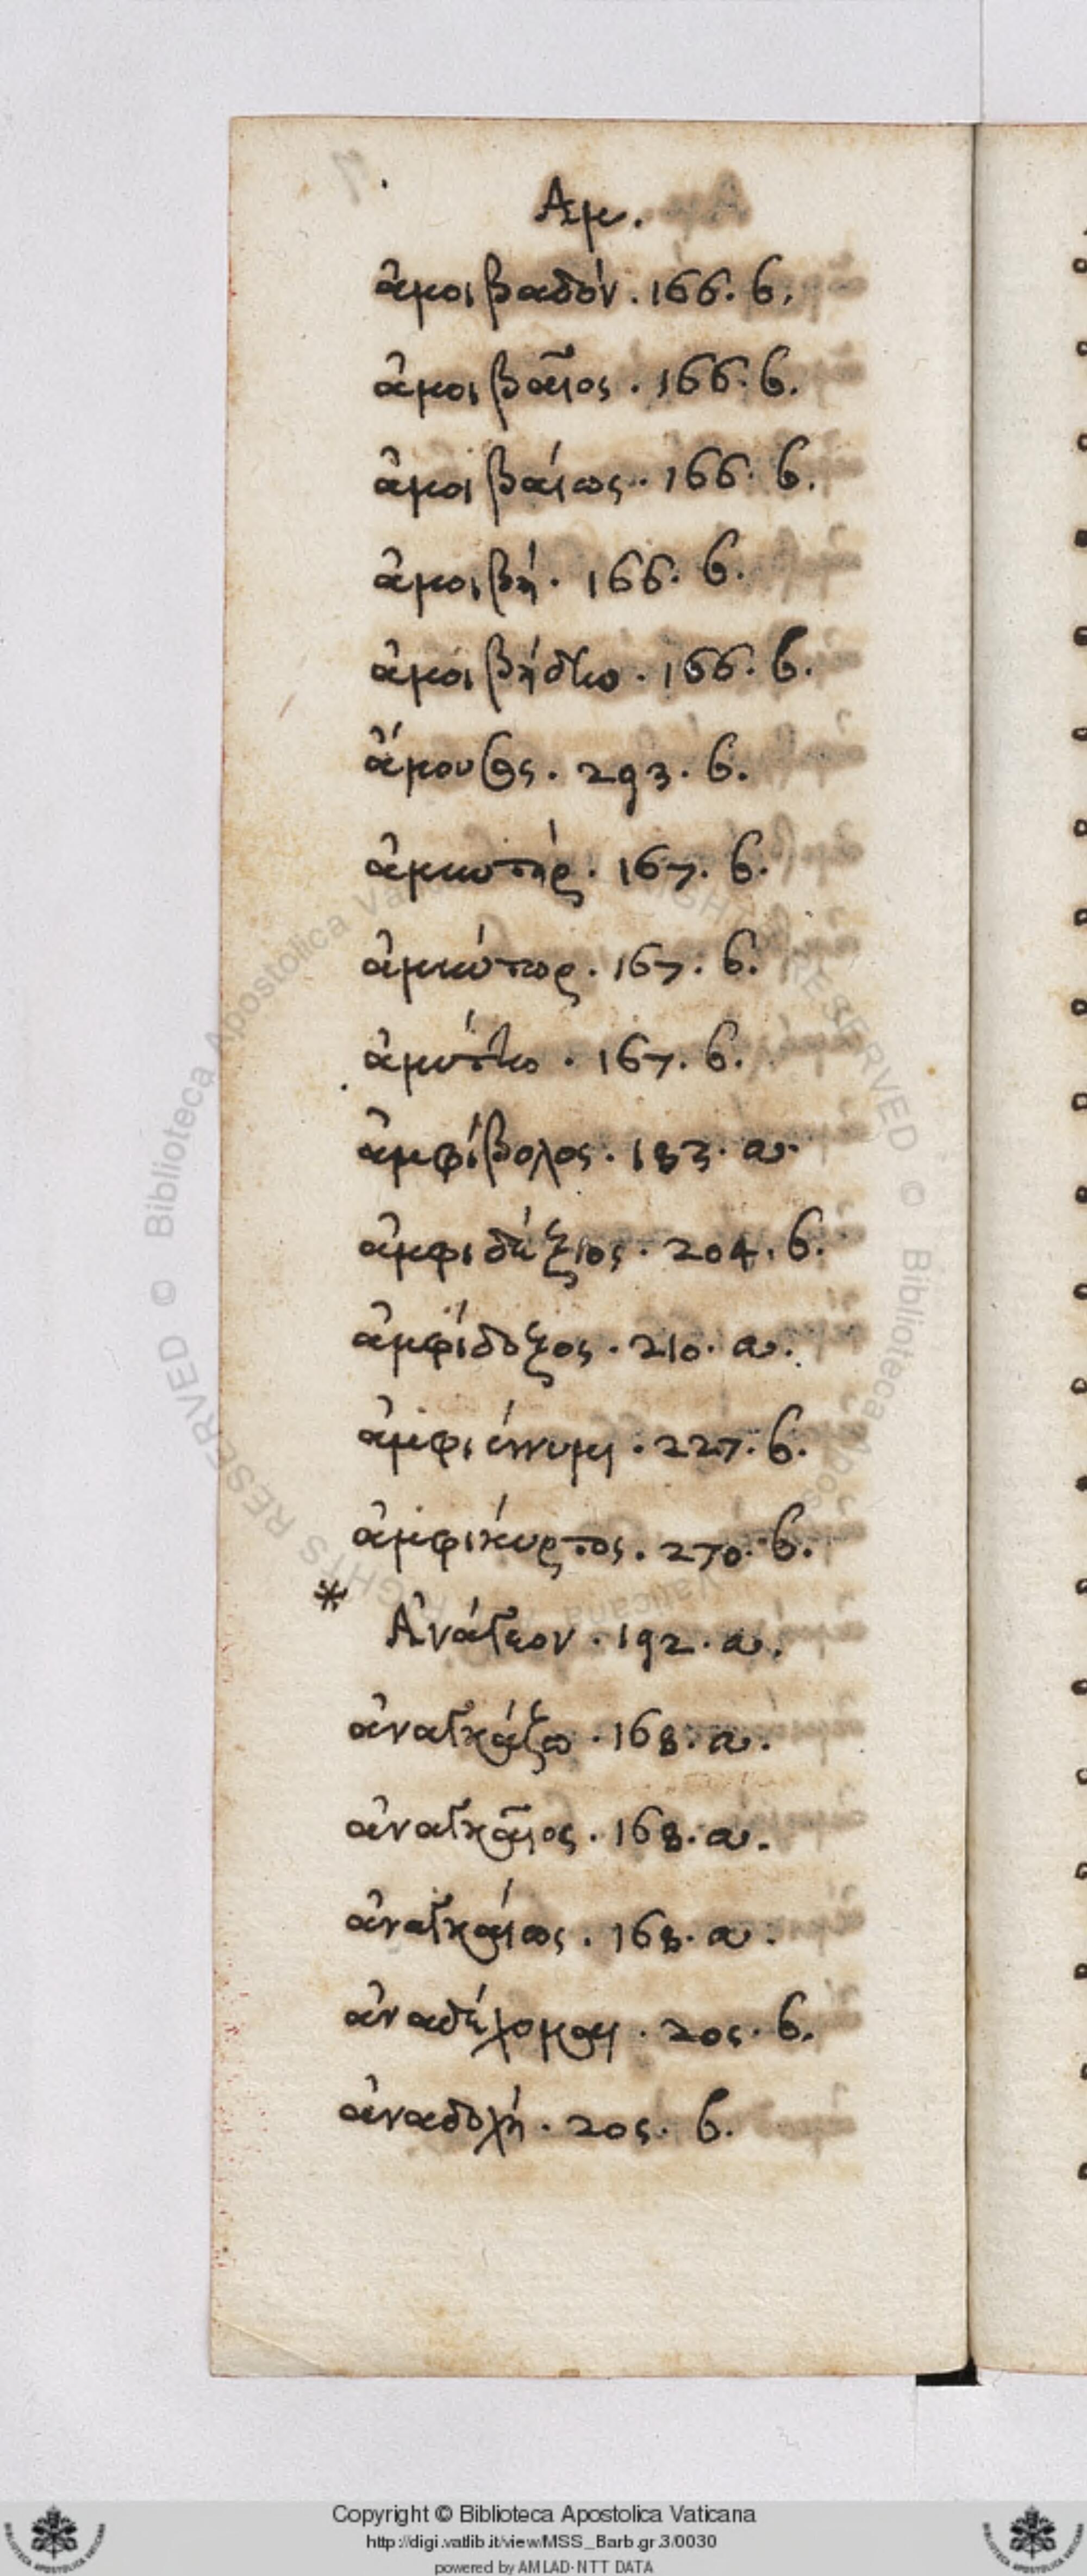 Αμ.
ἀμοιβαδόν . 166. b.
ἀμοιβαῖος . 166. b.
ἀμοιβαίως . 166. b.
ἀμοιβή . 166. b.
293. b.
167. b.
167. b.
167. b.
ἀμφίβολος . 183. a.
ἀμφιδέξιος . 204. b.
ἀμφίδοξος . 210. a.
ἀμφιέννυμι . 227. b.
ἀμφίκυρτος . 270. b.
* Ἀνάγεον . 192. a.
ἀναγκάζω . 168. a.
ἀναγκαῖος . 168. a.
ἀναγκαίως . 168. a.
ἀναδέχομαι . 205. b.
ἀναδοχή . 205. b.
Copyright © Biblioteca Apostolica Vaticana
http://digi.vatlib.it/view/MSS_Barb.gr.3/0030
powered by AMLAD-NTT DATA